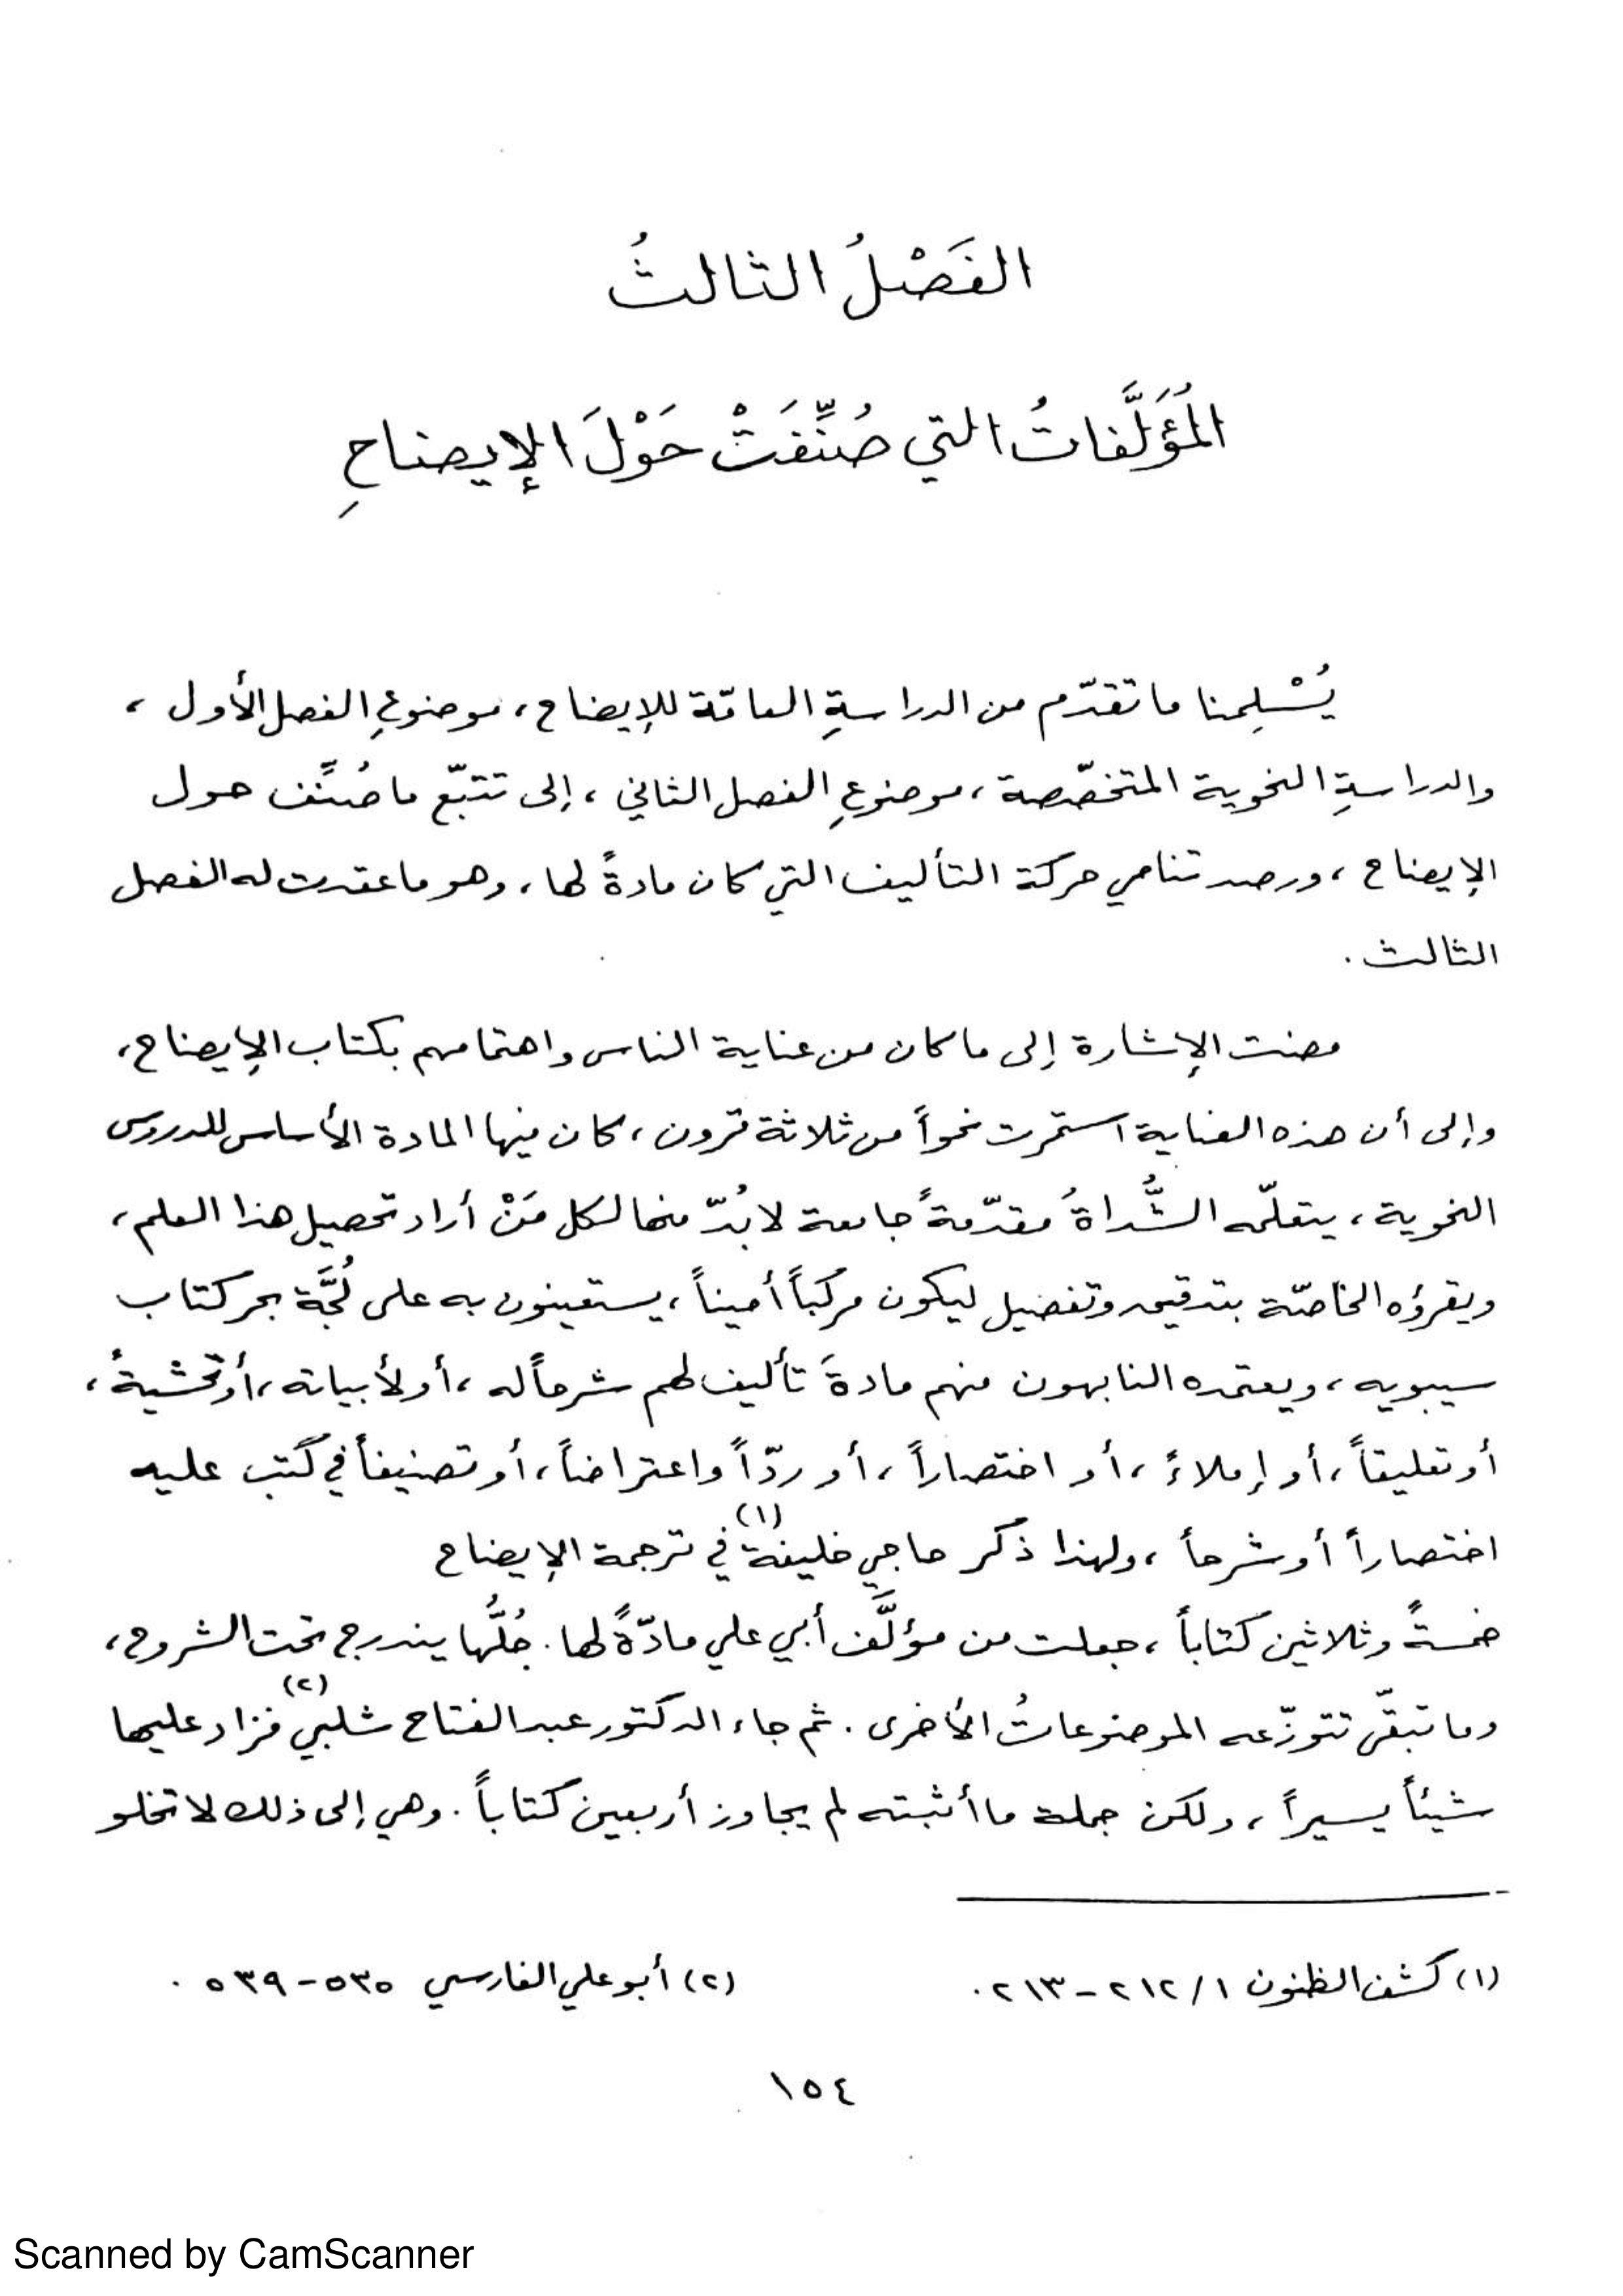 الفَصْلُ الثالثُ
المُؤَلَّفاتُ التي صُنِّفَتْ حَوْلَ الإيضاحِ
يُسْلِمنا ما تقدّم من الدراسةِ العامّة للإيضاح، موضوعِ الفصل الأول ،
والدراسةِ النحوية المتخصّصة ، موضوعِ الفصل الثاني ، إلى تتبّع ما صُنِّف حول
الإيضاح ، ورصد تنامي حركة التأليف التي كان مادةً لها ، وهو ما عقدت له الفصل
الثالث .
مضت الإشارة إلى ما كان من عناية الناس واهتمامهم بكتاب الإيضاح،
وإلى أن هذه العناية استمرت نحواً من ثلاثة قرون ، كان فيها المادة الأساس للدروس
النحوية ، يتعلّمه الشُّداةُ مقدّمةً جامعة لا بُدّ منها لكل مَنْ أراد تحصيل هذا العلم ،
ويقرؤه الخاصّة بتدقيق وتفصيل ليكون مركباً أميناً ، يستعينون به على لُجَّة بحر كتاب
سيبويه ، ويعتمده النابهون منهم مادةَ تأليف لهم شرحاً له ، أو لأبياته ، أو تحشيةً ،
أو تعليقاً ، أو إملاءً ، أو اختصاراً ، أو ردّاً واعتراضاً ، أو تصنيفاً في كُتب عليه
اختصاراً أو شرحاً ، ولهذا ذكر حاجي خليفة(١) في ترجمة الإيضاح
خمسةً وثلاثين كتاباً ، جعلت من مؤلَّف أبي علي مادّةً لها . جُلُّها يندرج تحت الشروح ،
وما تبقّى تتوزّعه الموضوعاتُ الأخرى . ثم جاء الدكتور عبد الفتاح شلبي(٢) فزاد عليها
شيئاً يسيراً ، ولكن جملة ما أثبته لم يجاوز أربعين كتاباً . وهي إلى ذلك لا تخلو
(١) كشف الظنون ١/ ٢١٢ - ٢١٣ .
(٢) أبو علي الفارسي ٥٣٥ - ٥٣٩ .
١٥٤
Scanned by CamScanner